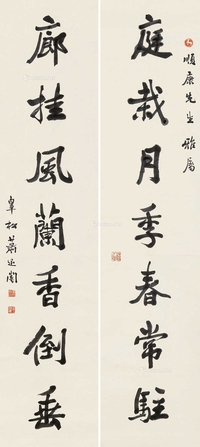 順康先生雅屬
庭栽月季春常駐
廊挂風蘭香倒垂
皋松蕭退闇